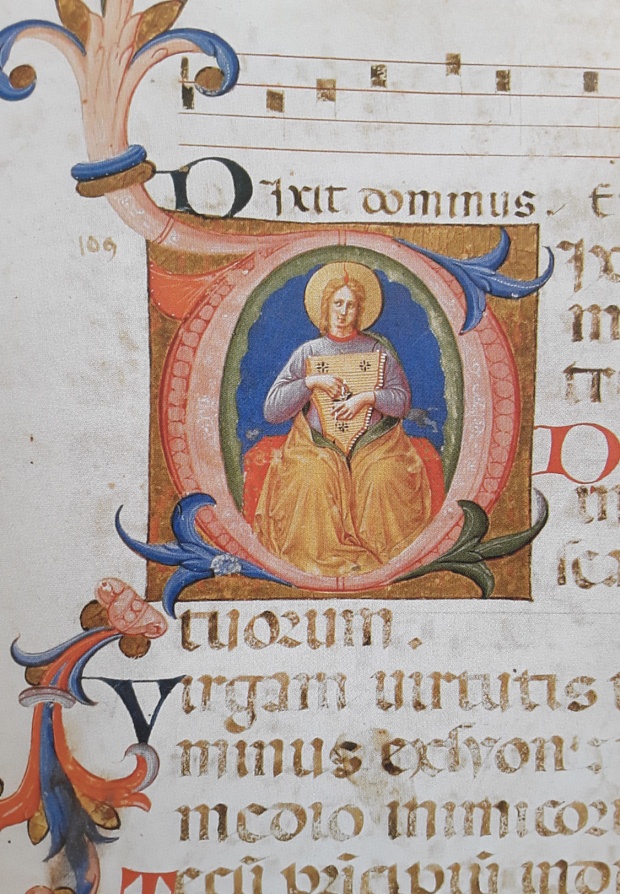 Dixit dominus. E
109
Dix
tuorum.
Virgam uirtutis
minus exsyon:
medio inimicor
Tecū principiū in di